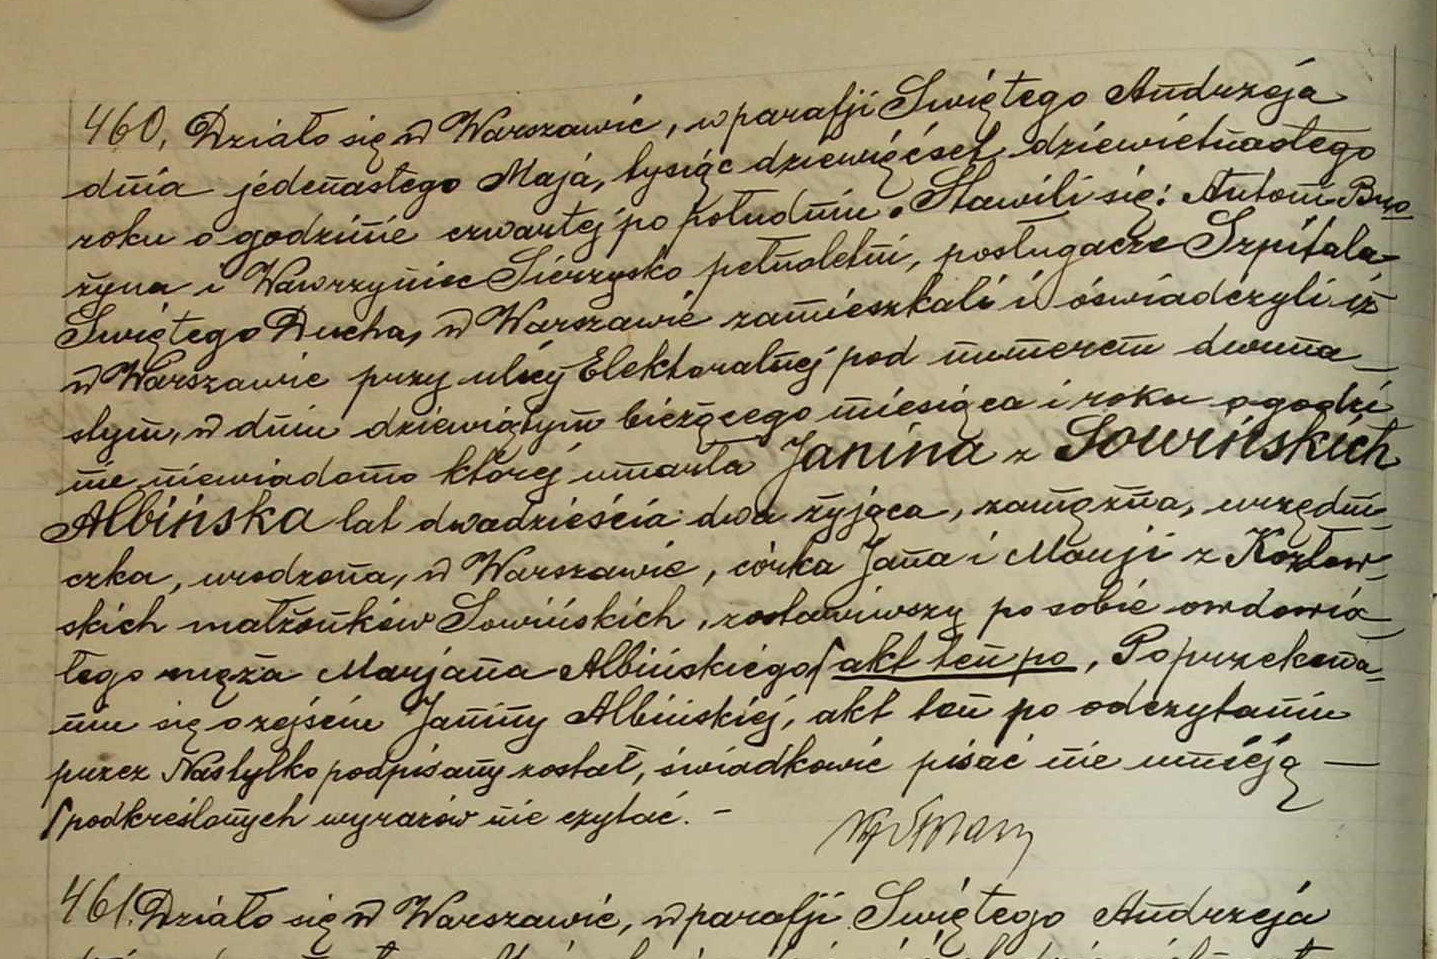 460, Działo się w Warszawie, w parafji Świętego Andrzeja
dnia jedenastego Maja, tysiąc dziewięćset dziewietnastego
roku o godzinie czwartej po południu. Stawili się: Antoni Bro
żyna i Wawrzyniec Sierzysko pełnoletni, posługacze Szpitala
Świętego Ducha, w Warszawie zamieszkali i oświadczyli iż
w Warszawie przy ulicy Elektoralnej pod numerem dwuna_
stym, w dniu dziewiątym bieżącego miesiąca i roku o godzi
nie niewiadomo której umarła Janina z Sowińskich
Albińska lat dwadzieścia dwa żyjąca, zamężna, urzędni_
czka, urodzona, w Warszawie, córka Jana i Marji z Kozłow_
skich małżonków Sowińskich, zostawiwszy po sobie owdowia_
łego męża Marjana Albińskiego/ akt ten po, Po przekona_
niu się o zejściu Janiny Albińskiej, akt ten po odczytaniu
przez Nas tylko podpisany został, świadkowie pisać nie umieją —
/podkreślonych wyrazów nie czytać. –
461. Działo się w Warszawie, w parafji Świętego Andrzeja